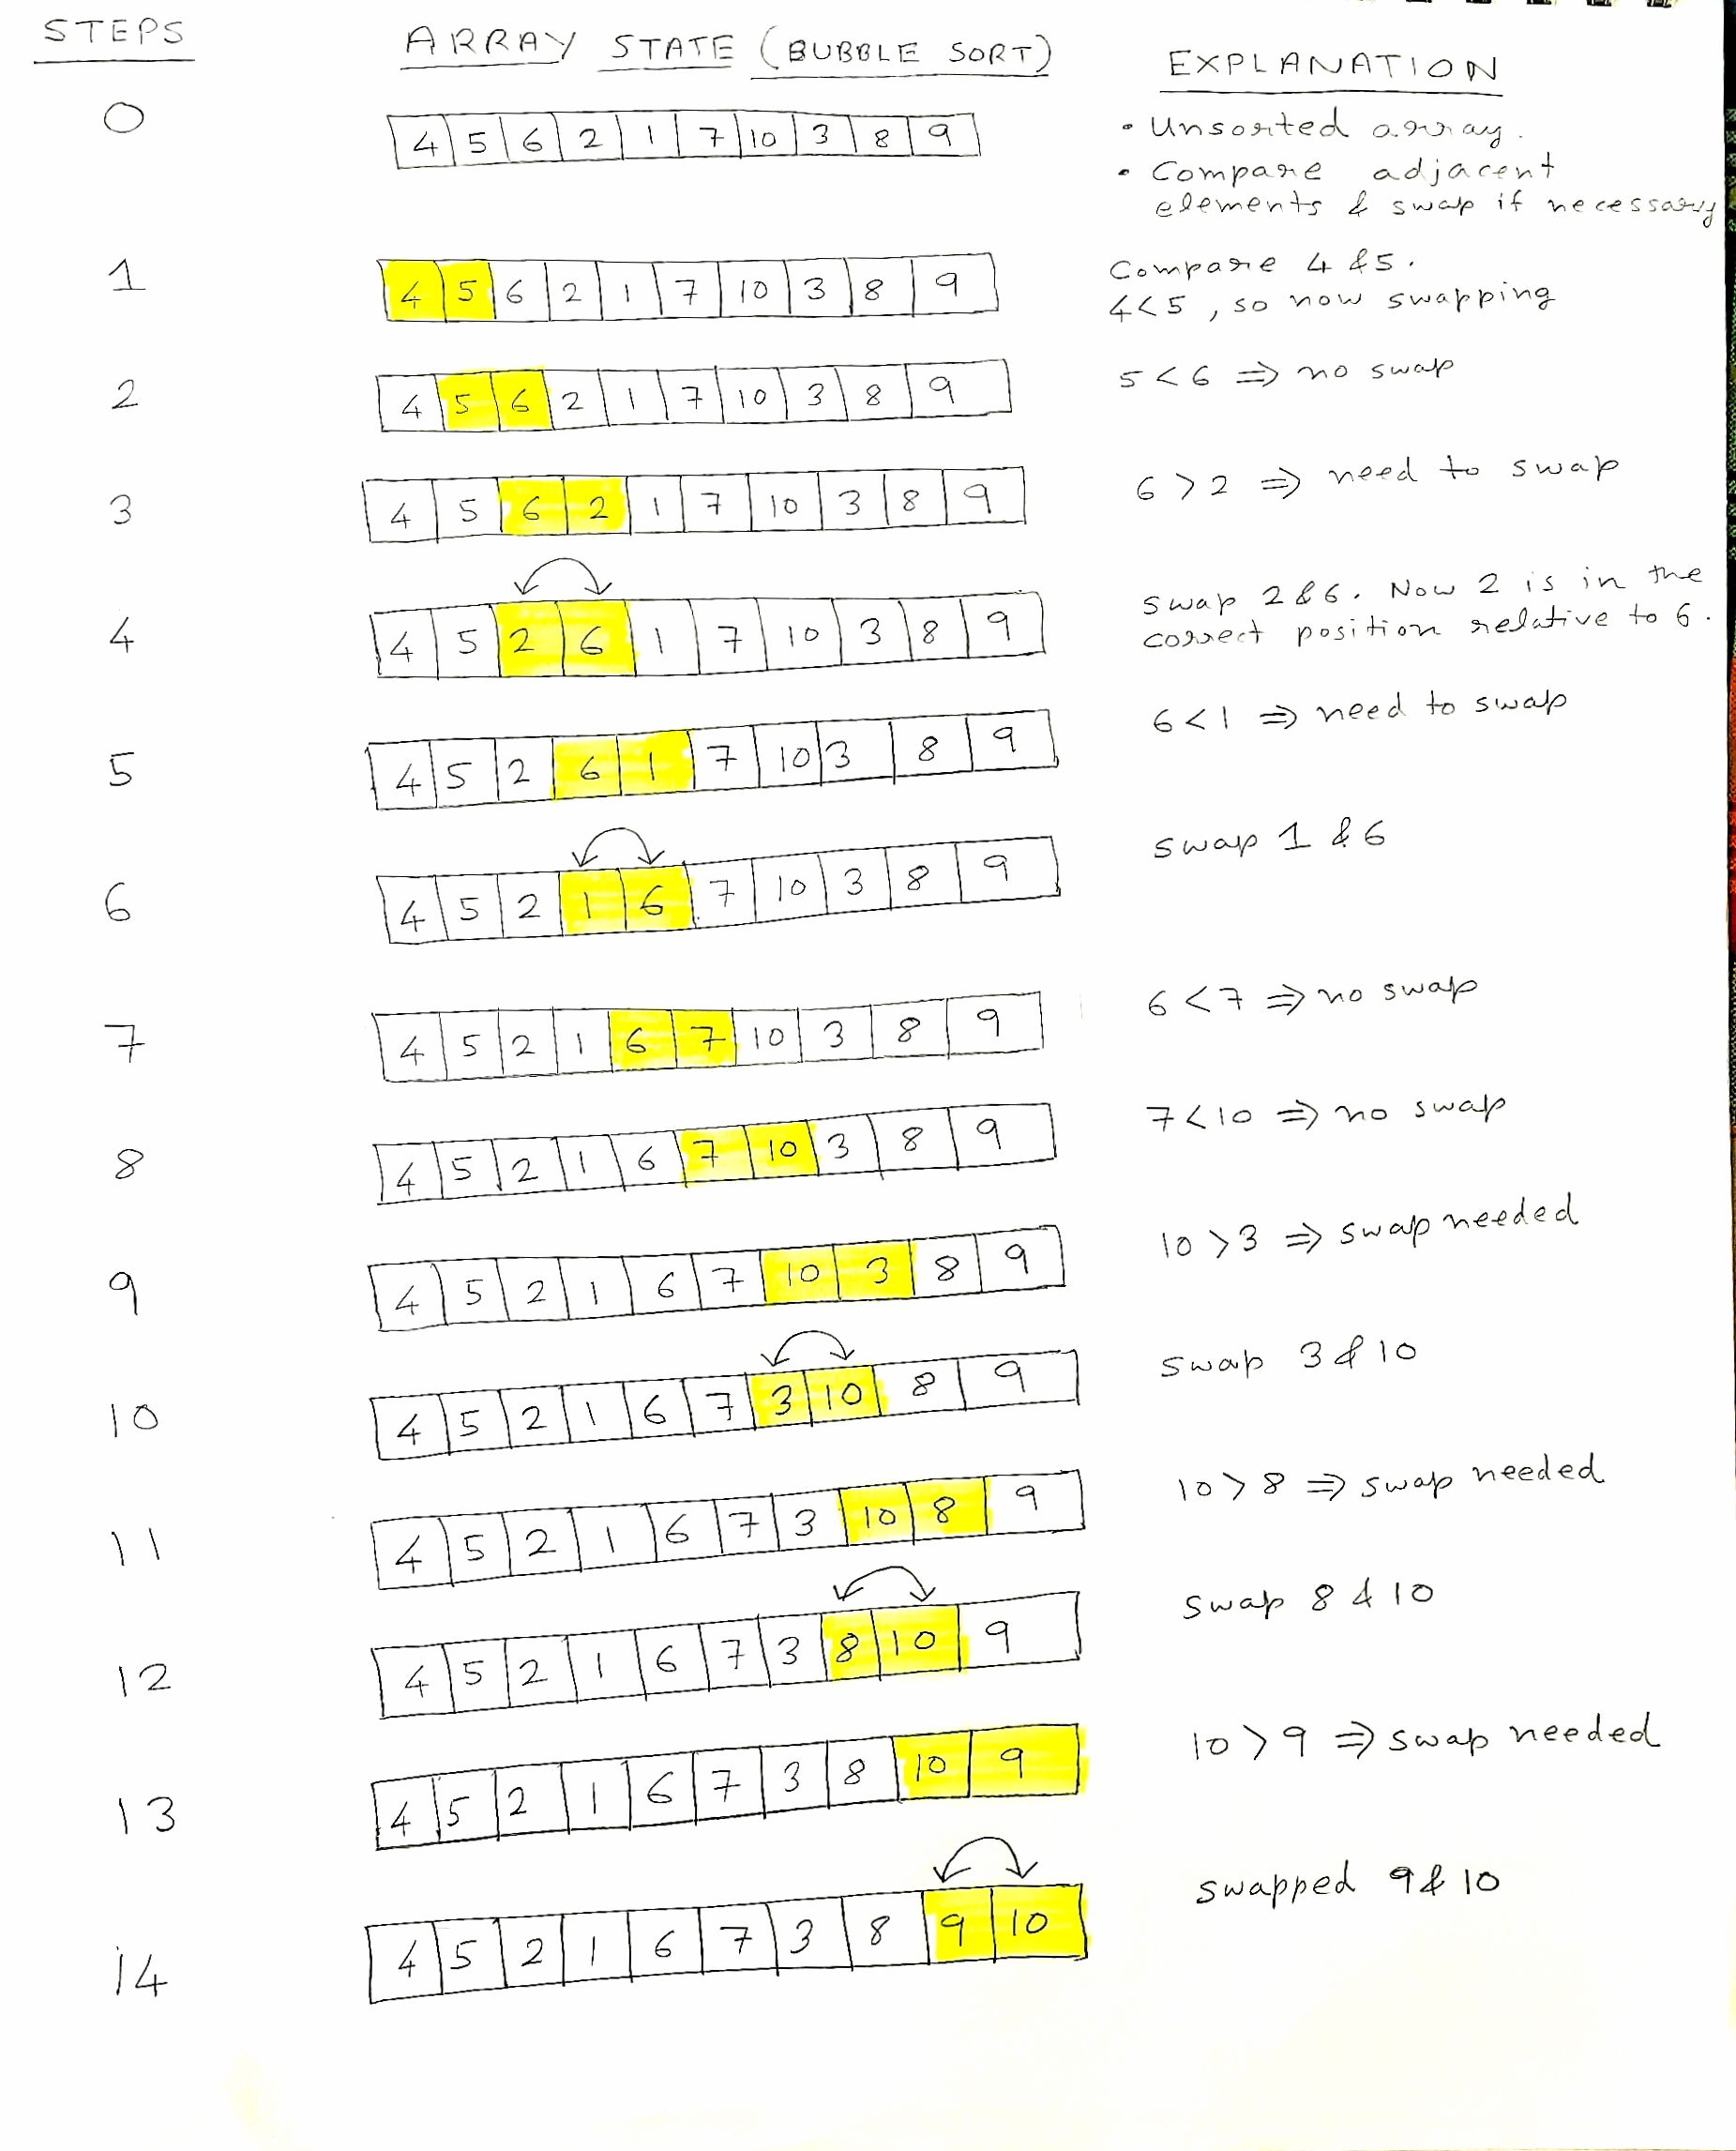 STEPS ARRAY STATE (BUBBLE SORT) EXPLANATION
0 4 5 6 2 1 7 10 3 8 9 • Unsorted array.
• Compare adjacent
elements & swap if necessary
1 4 5 6 2 1 7 10 3 8 9 Compare 4 & 5.
4<5, so now swapping
2 4 5 6 2 1 7 10 3 8 9 5<6 ⇒ no swap
3 4 5 6 2 1 7 10 3 8 9 6>2 ⇒ need to swap
4 4 5 2 6 1 7 10 3 8 9 swap 2&6. Now 2 is in the
correct position relative to 6.
5 4 5 2 6 1 7 10 3 8 9 6<1 ⇒ need to swap
6 4 5 2 1 6 7 10 3 8 9 swap 1 & 6
7 4 5 2 1 6 7 10 3 8 9 6<7 ⇒ no swap
8 4 5 2 1 6 7 10 3 8 9 7<10 ⇒ no swap
9 4 5 2 1 6 7 10 3 8 9 10>3 ⇒ swap needed
10 4 5 2 1 6 7 3 10 8 9 swap 3 & 10
11 4 5 2 1 6 7 3 10 8 9 10>8 ⇒ swap needed
12 4 5 2 1 6 7 3 8 10 9 swap 8 & 10
13 4 5 2 1 6 7 3 8 10 9 10>9 ⇒ swap needed
14 4 5 2 1 6 7 3 8 9 10 swapped 9 & 10